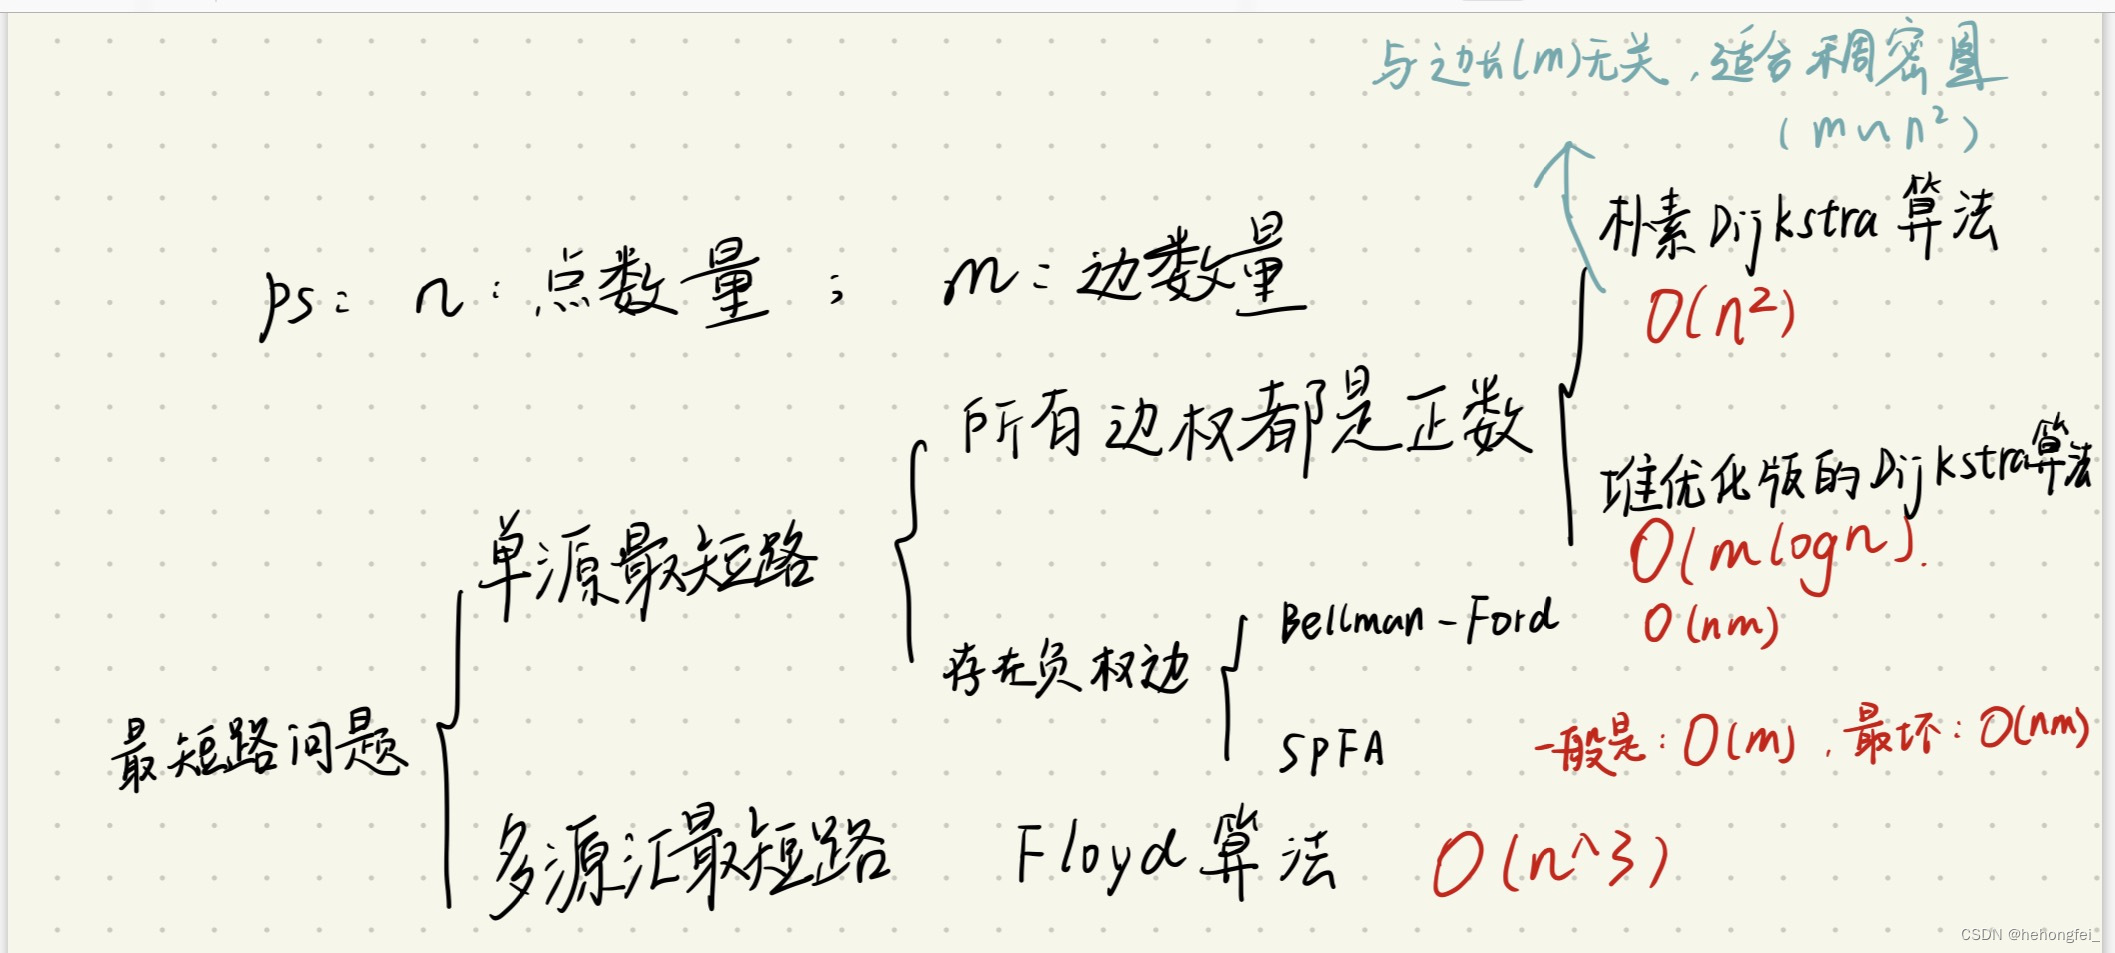 与边长(m)无关，适合稠密图
(m~n²)
ps: n:点数量； m:边数量
朴素Dijkstra算法
O(n²)
所有边权都是正数
堆优化版的Dijkstra算法
O(mlogn).
单源最短路
Bellman-Ford O(nm)
存在负权边
SPFA 一般是:O(m),最坏:O(nm)
最短路问题
多源汇最短路 Floyd算法 O(n^3)
CSDN @hehongfei_